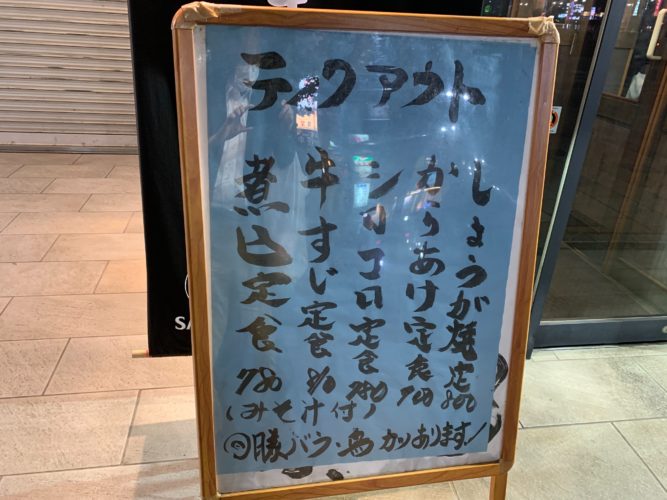 テイクアウト
しょうが焼定800
からあけ定食700
シロコロ定食780
牛すじ定食
煮込定食
(みそ汁付)
勝バラ・鳥カツあります
SA